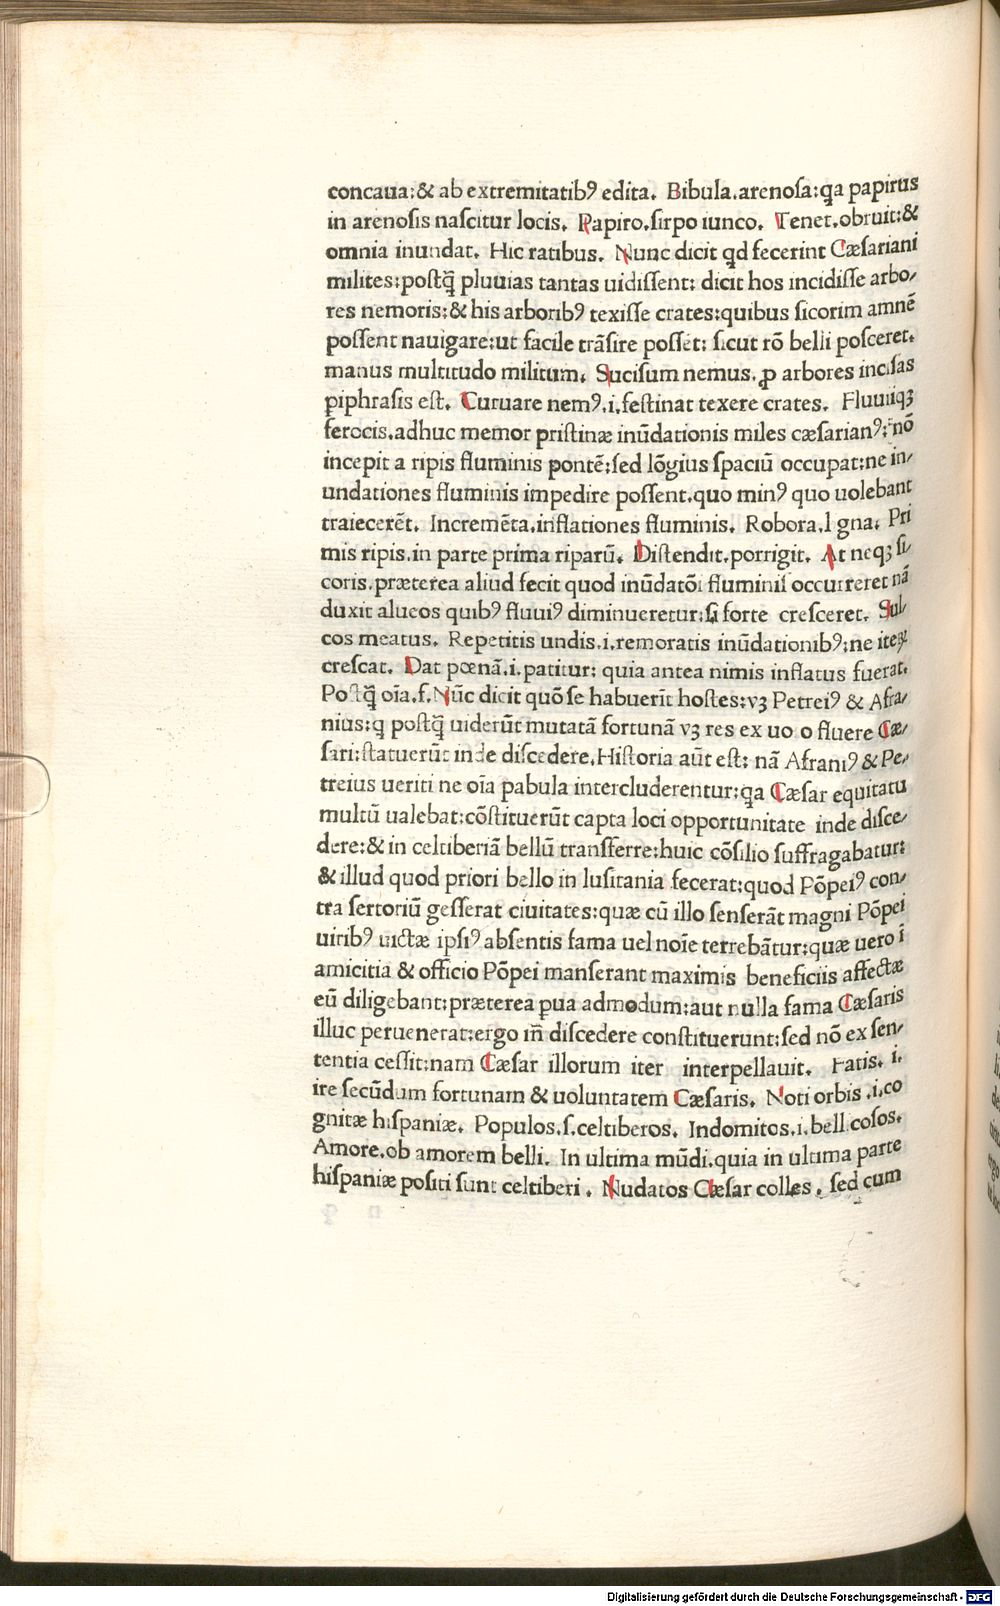 concaua:& ab extremitatibꝰ edita. Bibula.arenosa:qa papirus
in arenosis nascitur locis. Papiro.sirpo iunco. Tenet.obruit:&
omnia inundat. Hic ratibus. Nunc dicit qd fecerint Cæsariani
milites:postq̃ pluuias tantas uidissent: dicit hos incidisse arbo/
res nemoris:& his arboribꝰ texisse crates:quibus sicorim amnē
possent nauigare:ut facile trāsire posset: sicut rō belli posceret.
manus multitudo militum. Sucisum nemus.ꝑ arbores incisas
piphrasis est. Curuare nemꝰ.i.festinat texere crates. Fluuiiqꝫ
ferocis.adhuc memor pristinæ inūdationis miles cæsarianꝰ:nō
incepit a ripis fluminis pontē:sed lōgius spaciū occupat:ne in/
undationes fluminis impedire possent.quo minꝰ quo uolebant
traiecerēt. Incremēta.inflationes fluminis. Robora.lgna. Pri
mis ripis.in parte prima riparū. Distendit.porrigit. At neqꝫ si/
coris.præterea aliud fecit quod inūdatōi fluminis occurreret nā
duxit alueos quibꝰ fluuiꝰ diminueretur:si forte cresceret. Sul/
cos meatus. Repetitis undis.i.remoratis inūdationibꝰ:ne iteꝝ
crescat. Dat pœnā.i.patitur: quia antea nimis inflatus fuerat.
Postq̃ oīa.s.Nūc dicit quō se habuerīt hostes:vꝫ Petreiꝰ & Afra/
nius:q postq̃ uiderūt mutatā fortunā vꝫ res ex uo o fluere Cæ/
sari:statuerūt inde discedere.Historia aūt est: nā Afraniꝰ & Pe/
treius ueriti ne oīa pabula intercluderentur:qa Cæsar equitatu
multū ualebat:cōstituerūt capta loci opportunitate inde disce/
dere:& in celtiberiā bellū transferre:huic cōsilio suffragabatur:
& illud quod priori bello in lusitania fecerat:quod Pōpeiꝰ con/
tra sertoriū gesserat ciuitates:quæ cū illo senserāt magni Pōpei
uiribꝰ uictæ ipsiꝰ absentis fama uel noīe terrebātur:quæ uero ī
amicitia & officio Pōpei manserant maximis beneficiis affectæ
eū diligebant:præterea pua admodum:aut nulla fama Cæsaris
illuc peruenerat:ergo īn discedere constituerunt:sed nō ex sen/
tentia cessit:nam Cæsar illorum iter interpellauit. Fatis. i.
ire secūdum fortunam & uoluntatem Cæsaris. Noti orbis .i.co
gnitæ hispaniæ. Populos.s.celtiberos. Indomitos.i.bellicosos.
Amore.ob amorem belli. In ultima mūdi.quia in ultima parte
hispaniæ positi sunt celtiberi . Nudatos Cæsar colles . sed cum
Digitalisierung gefördert durch die Deutsche Forschungsgemeinschaft - DFG